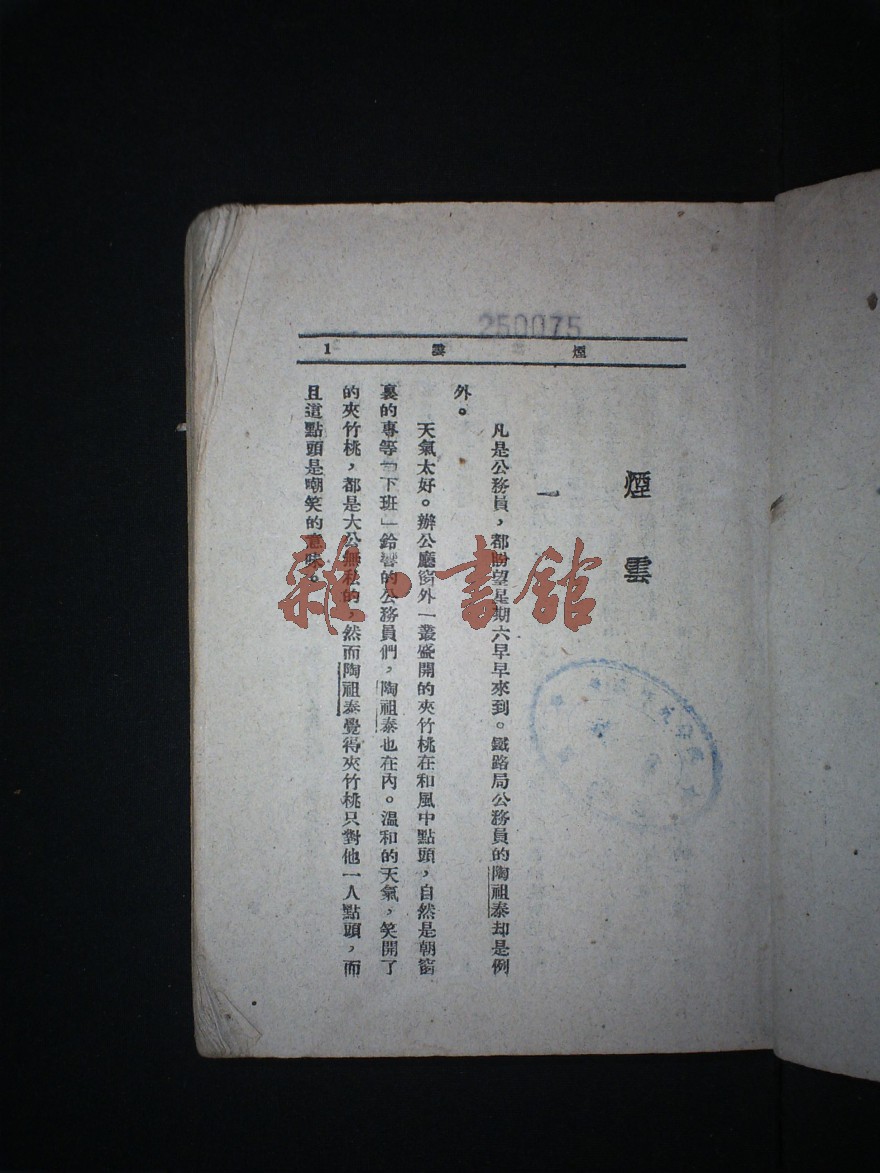 250075
煙雲 1
煙雲
一
凡是公務員，都盼望星期六早早來到。鐵路局公務員的陶祖泰却是例
外。
天氣太好。辦公廳窗外一叢盛開的夾竹桃在和風中點頭，自然是朝窗
裏的專等「下班」鈴響的公務員們，陶祖泰也在內。溫和的天氣，笑開了
的夾竹桃，都是大公無私的，然而陶祖泰覺得夾竹桃只對他一人點頭，而
且這點頭是嘲笑的意味。
雜·書館